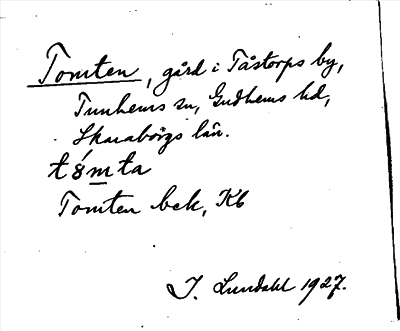 Tomten, gård i Tåstorps by,
Tunhems sn, Gudhems hd,
Skaraborgs län.
t8́mta
Tomten bek, Kb
I. Lundahl 1927.